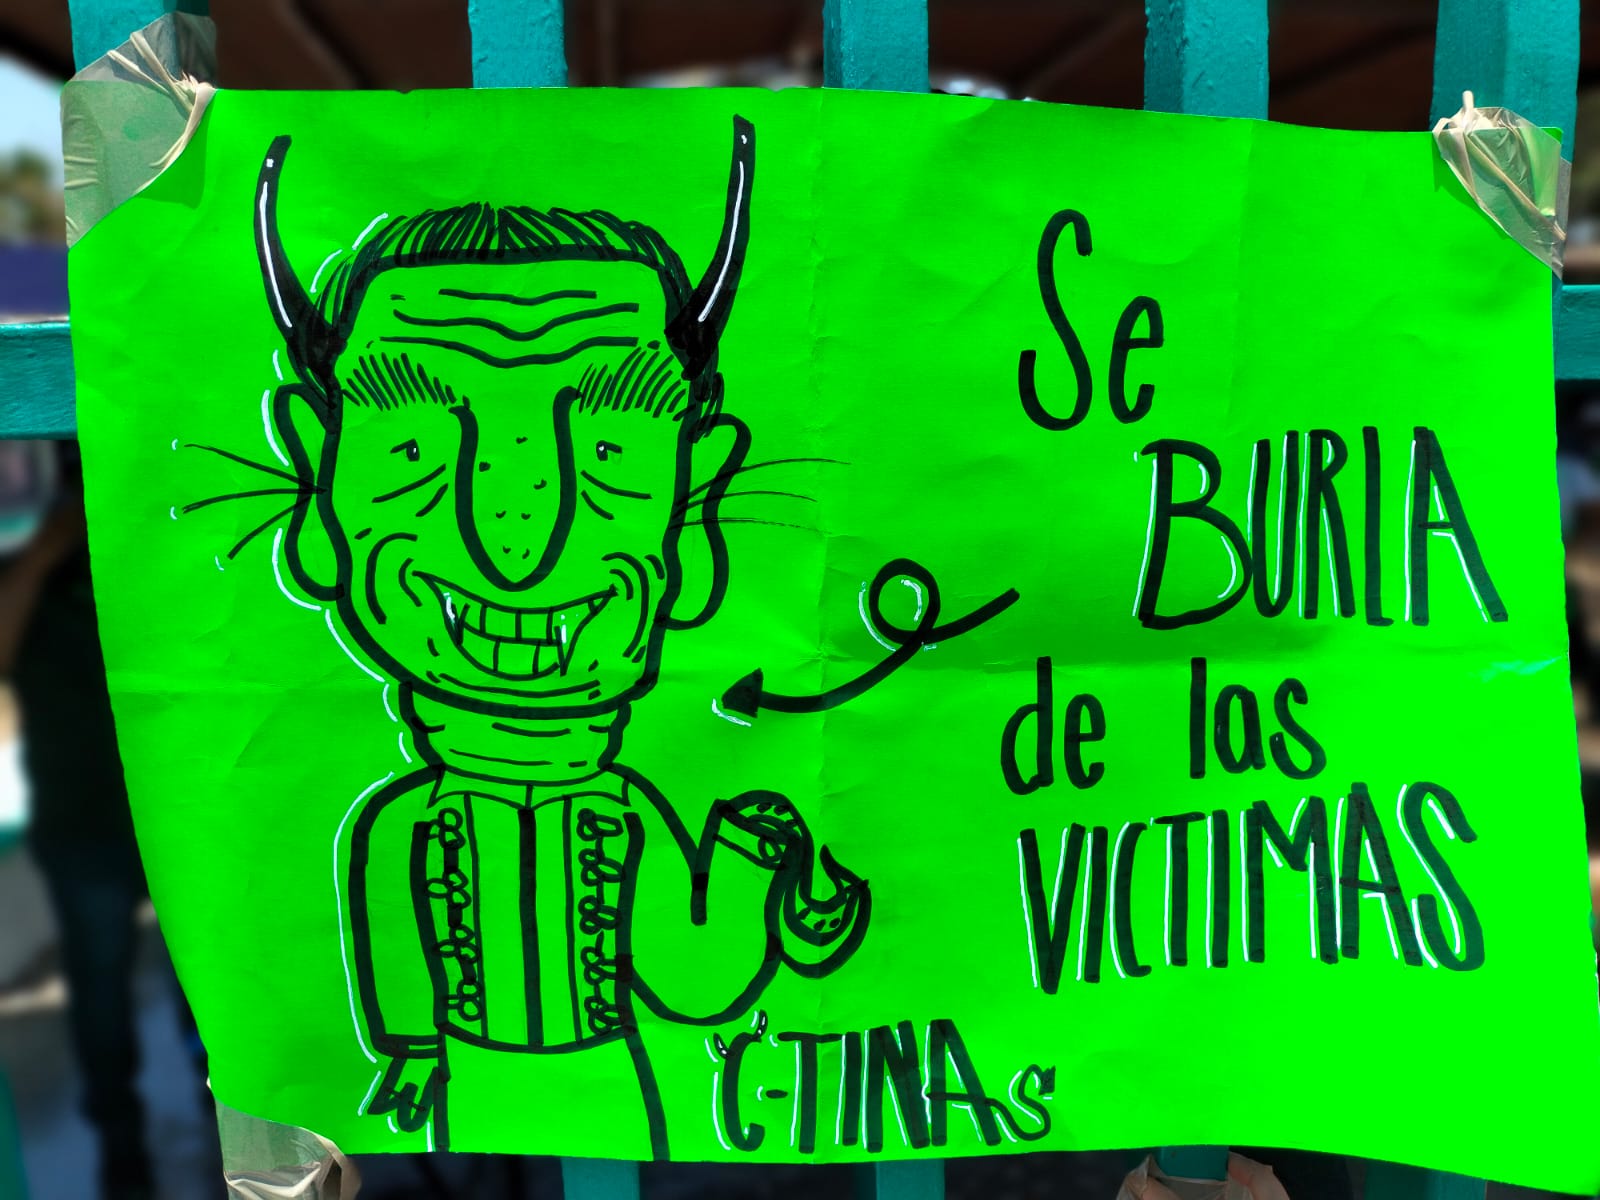 Se
BURLA
de las
VICTIMAS
C-TINAs